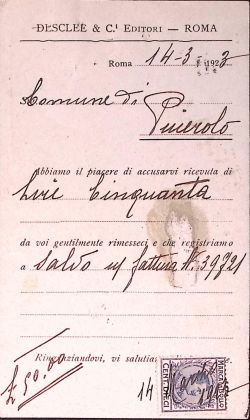 DESCLÉE & C.i EDITORI — ROMA
Roma 14-3-1922
Comune di
Abbiamo il piacere di accusarvi ricevuta di
Lire Cinquanta
da voi gentilmente rimesseci e che registriamo
a saldo n/ fattura N. 39721
Ringraziandovi, vi salutia
£ 50.00
14
CENT. DIECI